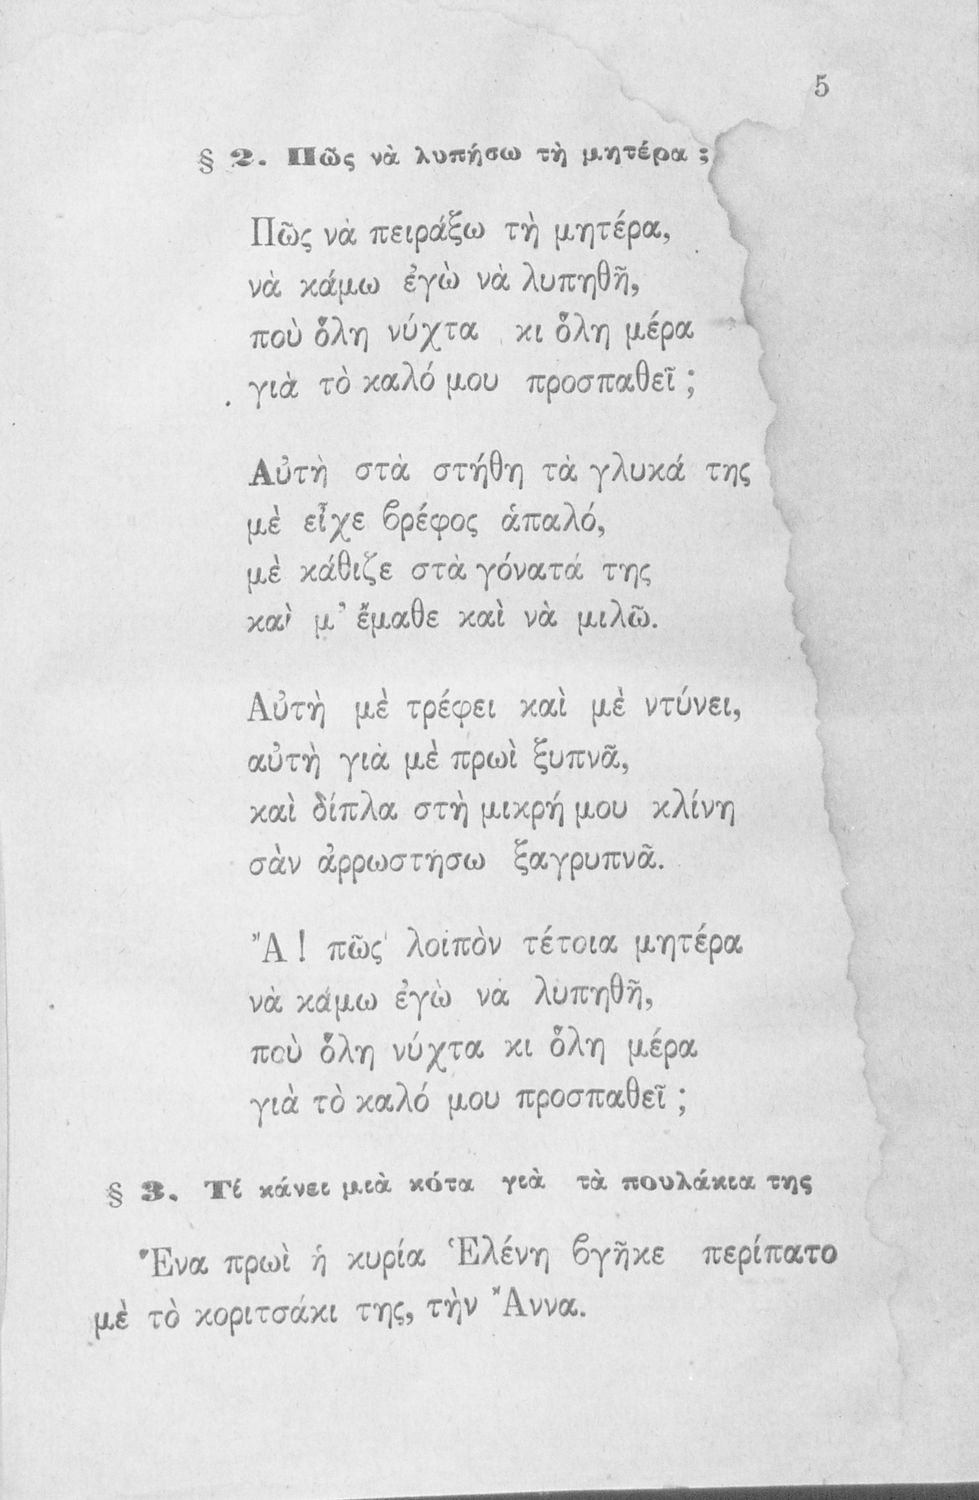 5
§ 2. Πῶς νὰ λυπήσω τὴ μητέρα ;
Πῶς νὰ πειράξω τὴ μητέρα,
νὰ κάμω ἐγὼ νὰ λυπηθῆ,
ποὺ ὅλη νύχτα κι ὅλη μέρα
γιὰ τὸ καλό μου προσπαθεῖ ;
Αὐτὴ στὰ στήθη τὰ γλυκά της
μὲ εἶχε ϐρέφος ἁπαλό,
μὲ κάθιζε στὰ γόνατά της
καὶ μ᾿ ἔμαθε καὶ νὰ μιλῶ.
Αὐτὴ μὲ τρέφει καὶ μὲ ντύνει,
αὐτὴ γιὰ μὲ πρωὶ ξυπνᾶ,
καὶ δίπλα στὴ μικρή μου κλίνη
σὰν ἀρρωστήσω ξαγρυπνᾶ.
Ἄ ! πῶς λοιπὸν τέτοια μητέρα
νὰ κάμω ἐγὼ νὰ λυπηθῆ,
ποὺ ὅλη νύχτα κι ὅλη μέρα
γιὰ τὸ καλό μου προσπαθεῖ ;
§ 3. Τί κάνει μιὰ κότα γιὰ τὰ πουλάκια της
Ἕνα πρωὶ ἡ κυρία Ἑλένη ϐγῆκε περίπατο
μὲ τὸ κοριτσάκι της, τὴν Ἄννα.